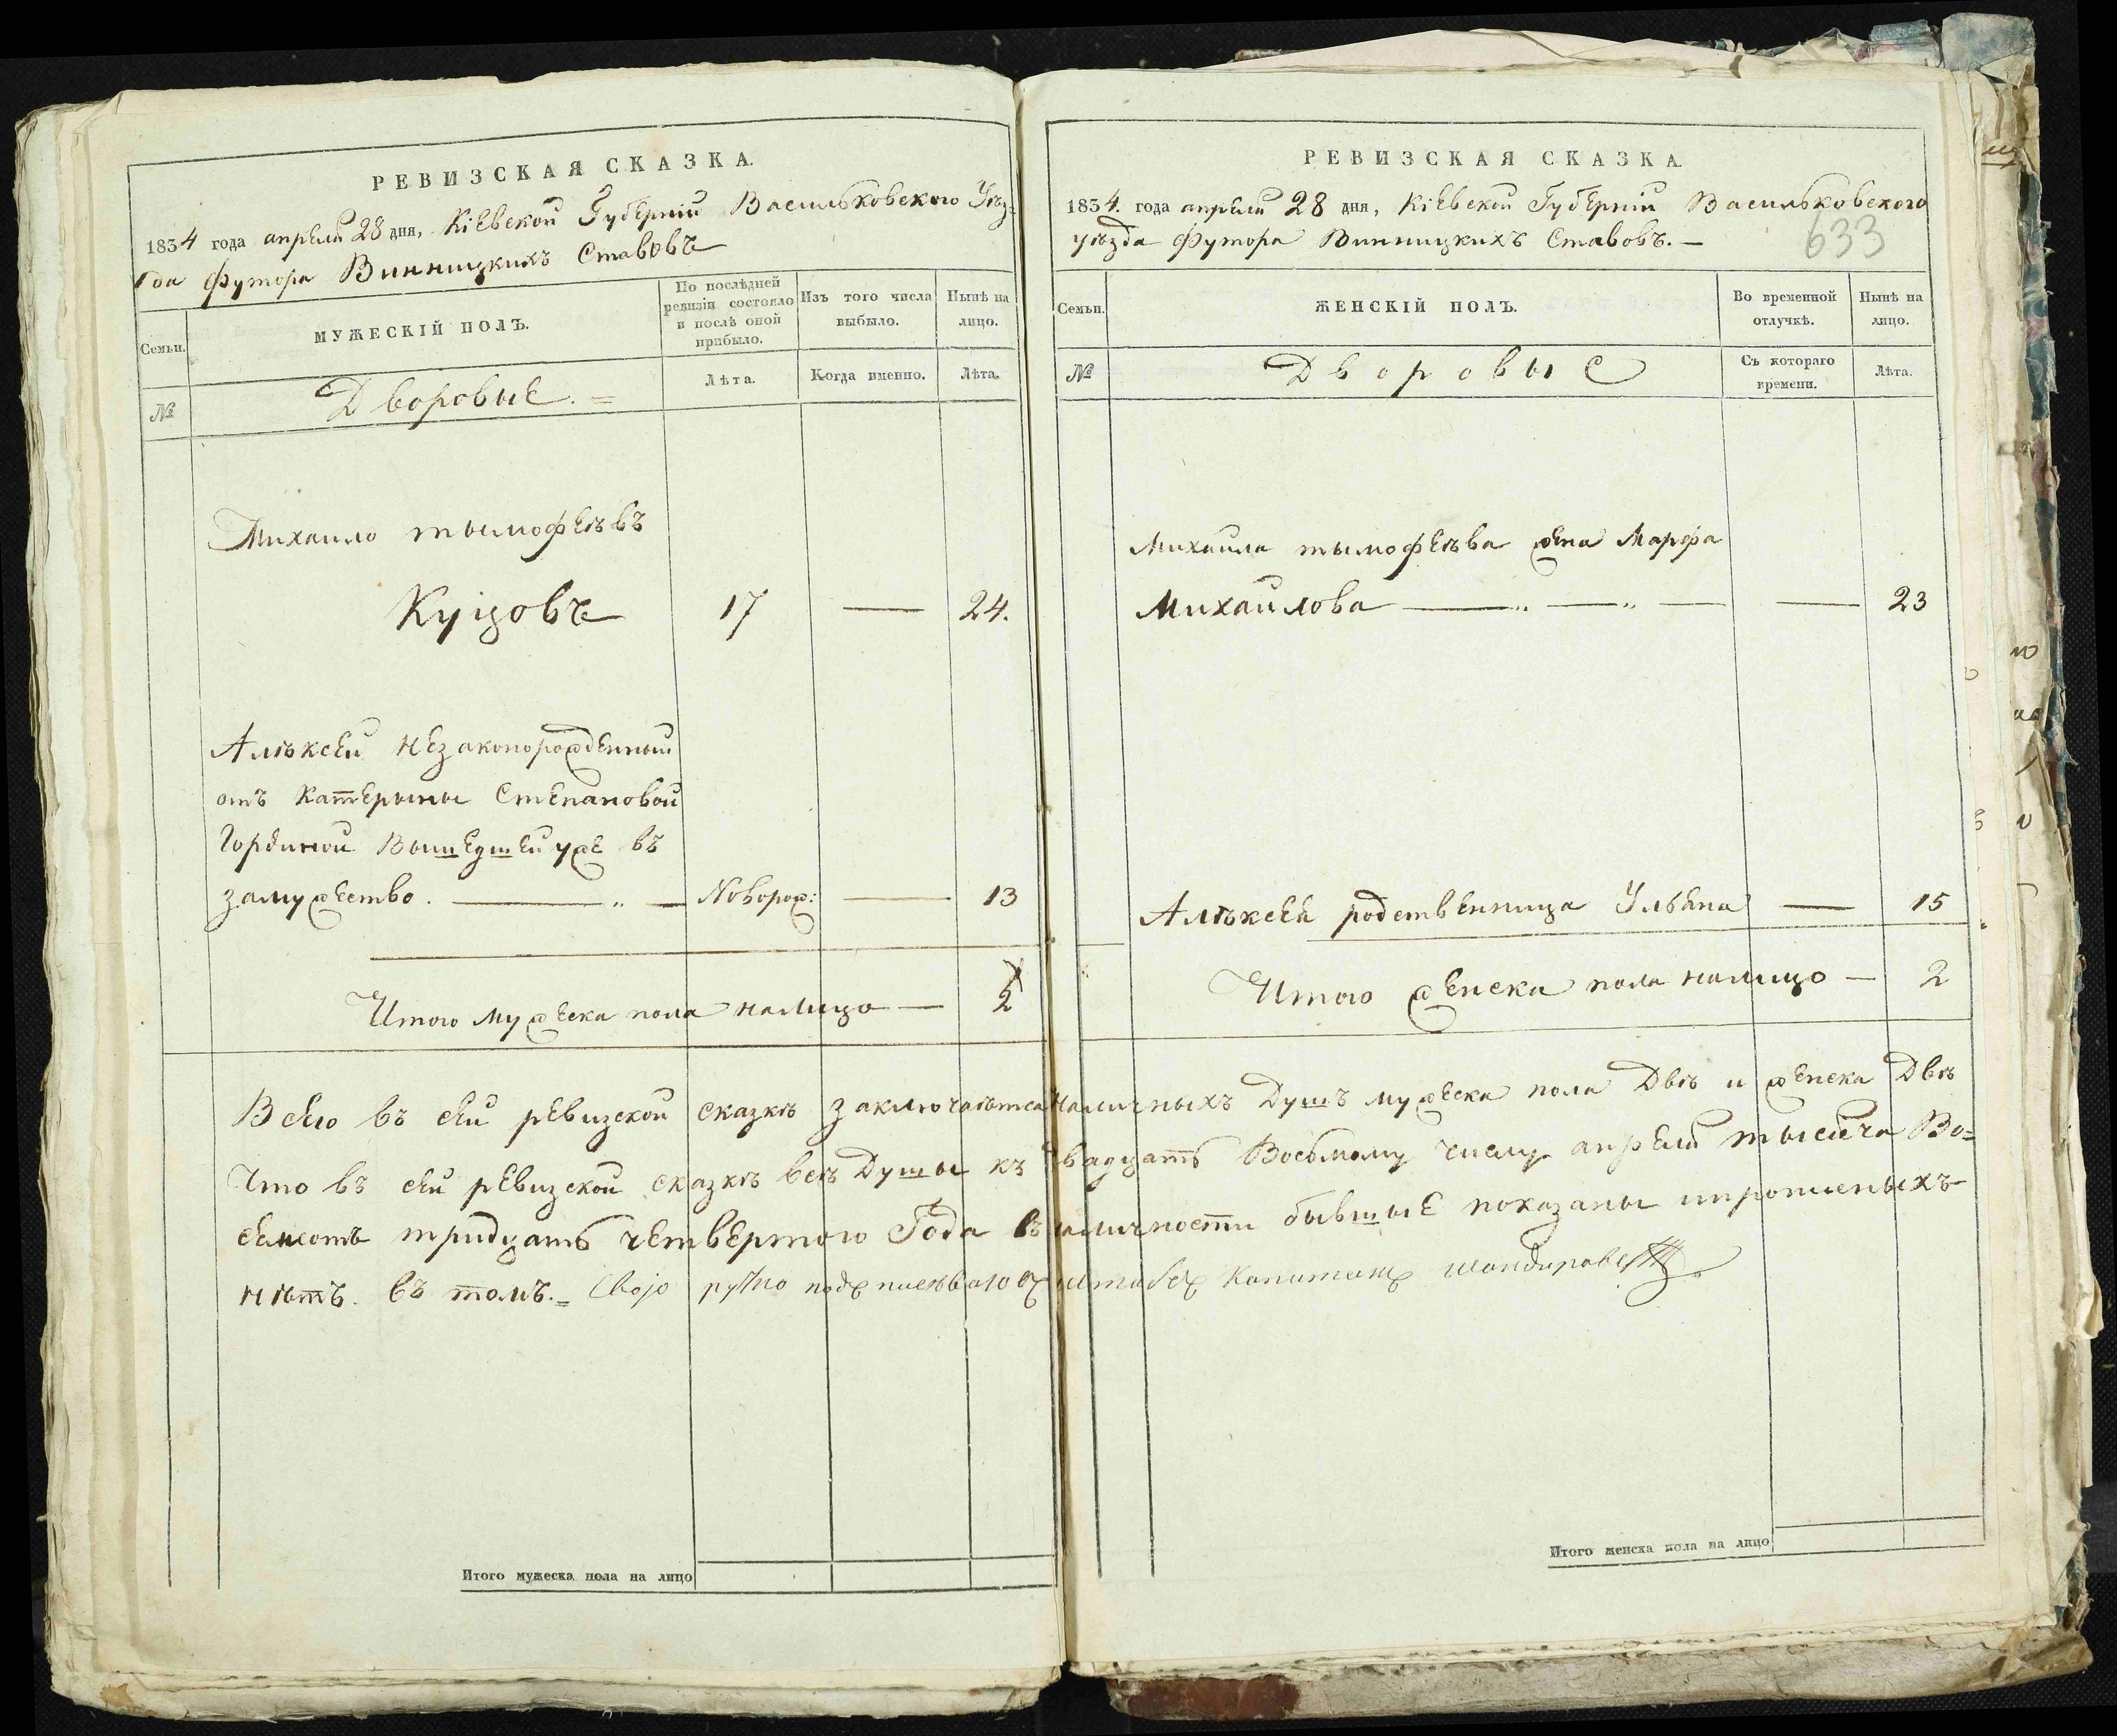 РЕВИЗСКАЯ СКАЗКА.
1834 года апреля 28 дня, Кіевской Губерніи Васильковского Уѣз-
да Футора Винницкихъ Ставовъ
Семьи.
МУЖЕСКІЙ ПОЛЪ.
По послѣдней
ревизіи состояло
и послѣ оной
прибыло.
Изъ того числа
выбыло.
Нынѣ на
лицо.
№
Дворовые. =
Лѣта.
Когда именно.
Лѣта.
Михаило тымофеѣвъ
Куцовъ 17 — 24.
Алѣксей незаконорожденный
отъ Катерыны Степановой
Гординой Вышедшей уже въ
замужество. — „ — Новорож: — 13
Итого мужеска пола налицо — 2
РЕВИЗСКАЯ СКАЗКА.
1834. года апреля 28 дня, Кіевской Губерніи Васильковского
уѣзда Футора Винницкихъ Ставовъ. —
633
Семьи.
ЖЕНСКІЙ ПОЛЪ.
Во временной
отлучкѣ.
Нынѣ на
лицо.
№
Дворовые
Съ котораго
времени.
Лѣта.
Михаила тымофеѣва жена Марфа
Михайлова — „ — „ — — 23
Алѣксея родственница Ульяна — 15
Итого женска пола налицо — 2
Всего въ сей ревизской сказкѣ заключаѣтса наличныхъ Душъ мужеска пола Двѣ и женска Двѣ
Что въ сей ревизской сказкѣ всѣ Душы къ двадцать Восьмому числу апреля тысяча Во=
семсотъ тридцать четвертого Года въ наличности бывшые показаны ипрописныхъ
нѣтъ. въ томъ. = Свою ручно подписываюсь штабсъ Капитанъ
Итого мужеска пола на лицо
Итого женска пола на лицо